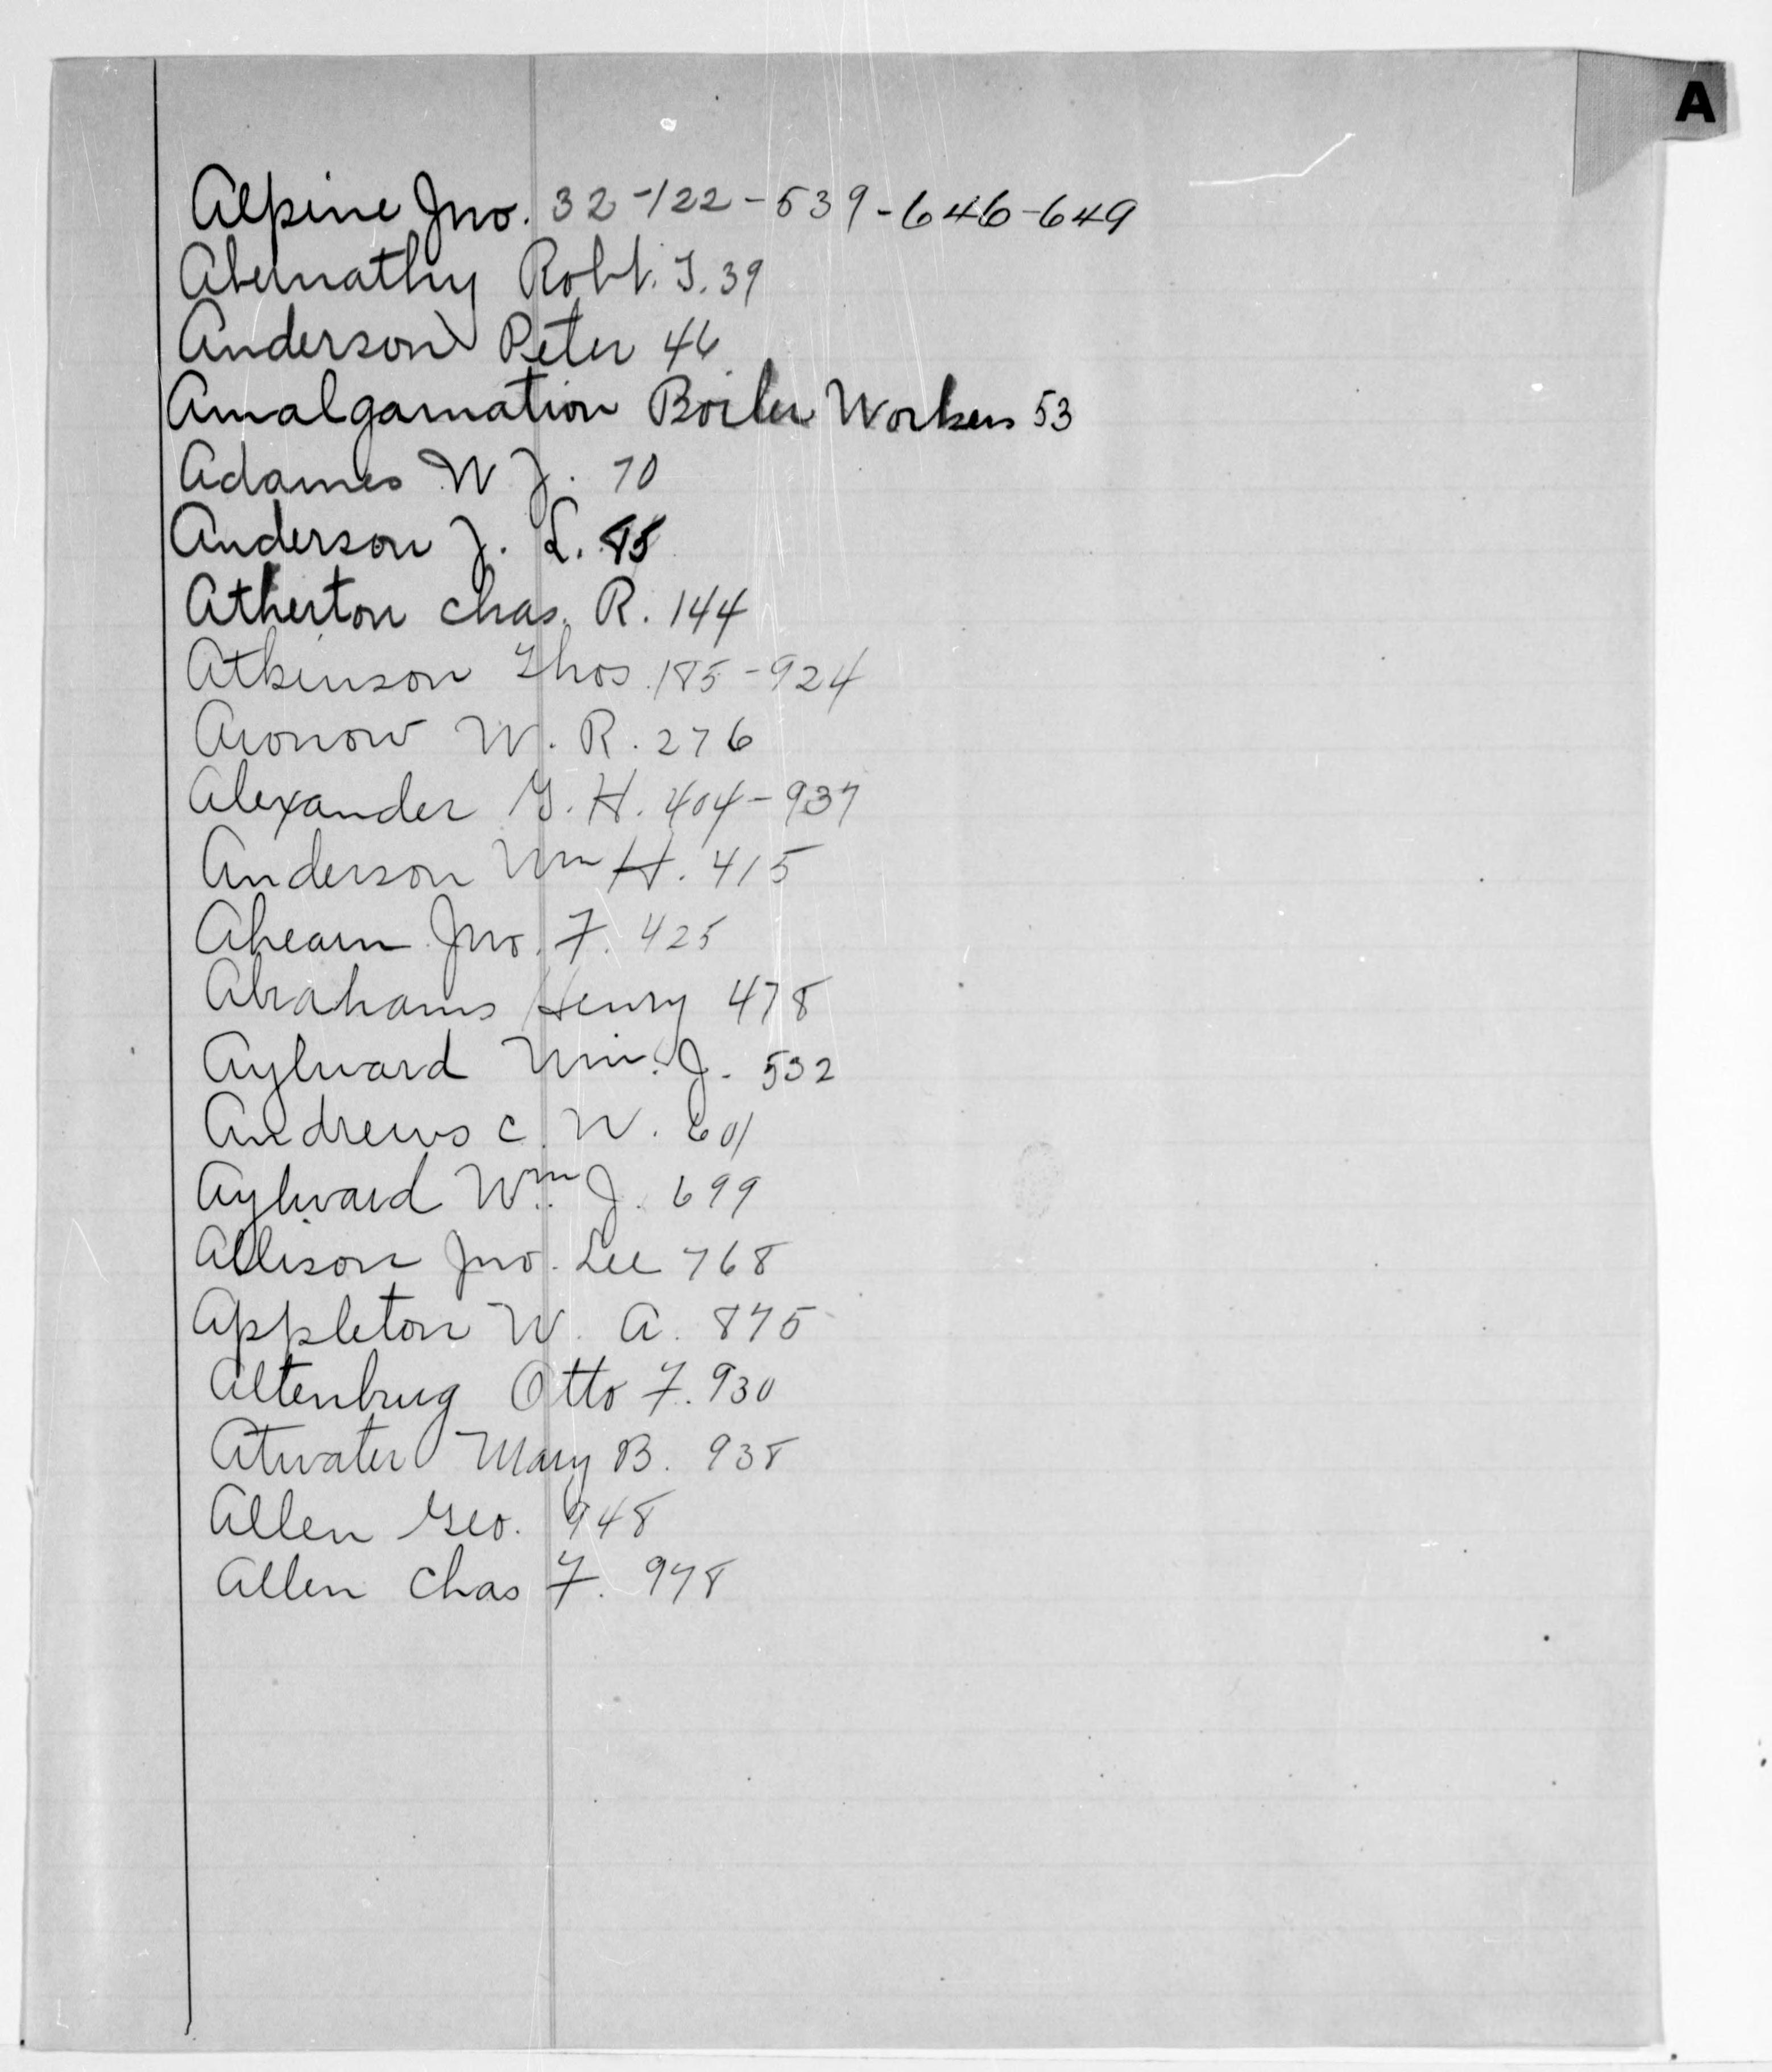 A
Alpine Jno. 32-122-539-646-649
Abernathy Robt. T. 39
Anderson Peter 46
Amalgamation Boiler Workers 53
Adames W J. 70
Anderson J. L. 85
Atherton Chas. R. 144
Atkinson Thos 185-924
Aronow W. R. 276
Alexander G. H. 404-937
Anderson Wm H. 415
Ahearn Jno. F. 425
Abrahams Henry 478
Aylward Wm. J. 532
Andrews C. W. 601
Aylward Wm. J. 699
Allison Jno. Lee 768
Appleton W. A. 875
Altenbrug Otto F. 930
Atwater Mary B. 938
Allen Geo. 948
Allen Chas F. 978